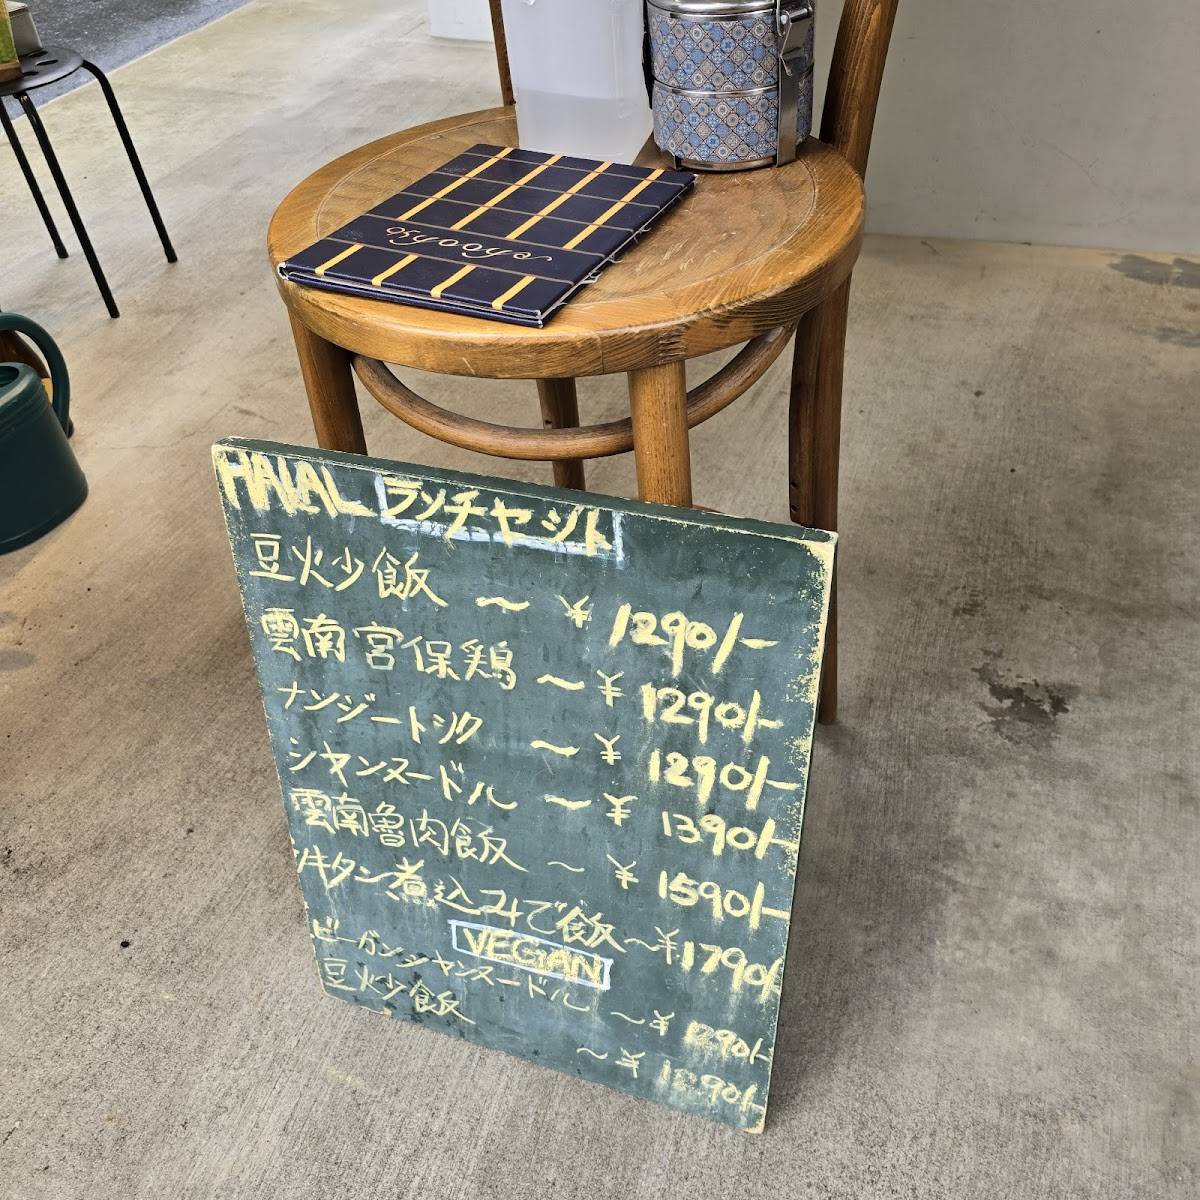 HALAL ランチセット
豆火少飯 ~ ¥1290/-
雲南宮保鶏 ~ ¥1290/-
ナンジートウク ~ ¥1290/-
シャンヌードル ~ ¥1390/-
雲南魯肉飯 ~ ¥1590/-
煮込みで飯 ~¥1790/-
VEGAN
ビーガンシャンヌードル ~¥1290/-
豆火少飯 ~¥